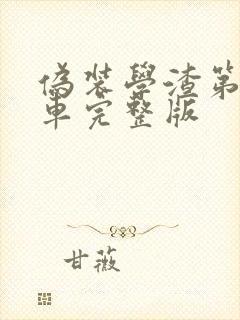 偽裝學渣第
車完整版
甘薇